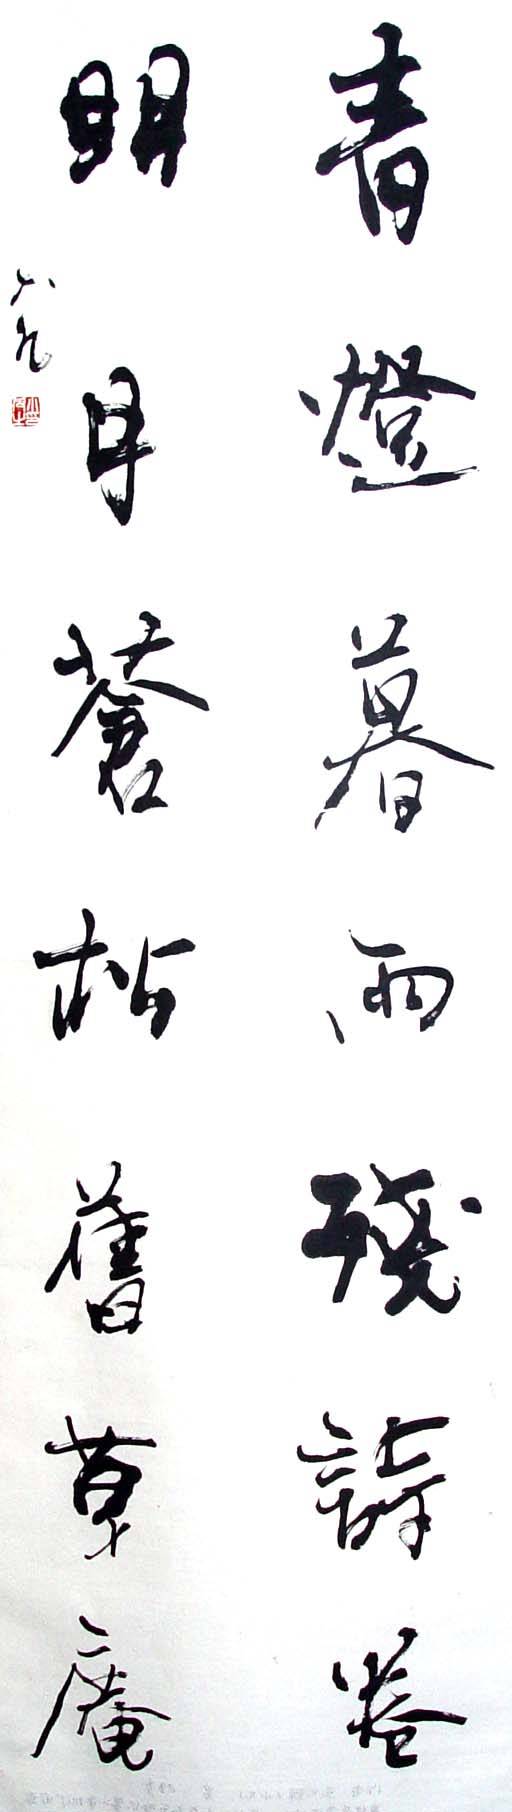 青燈暮雨殘詩卷
明月蒼松舊草庵